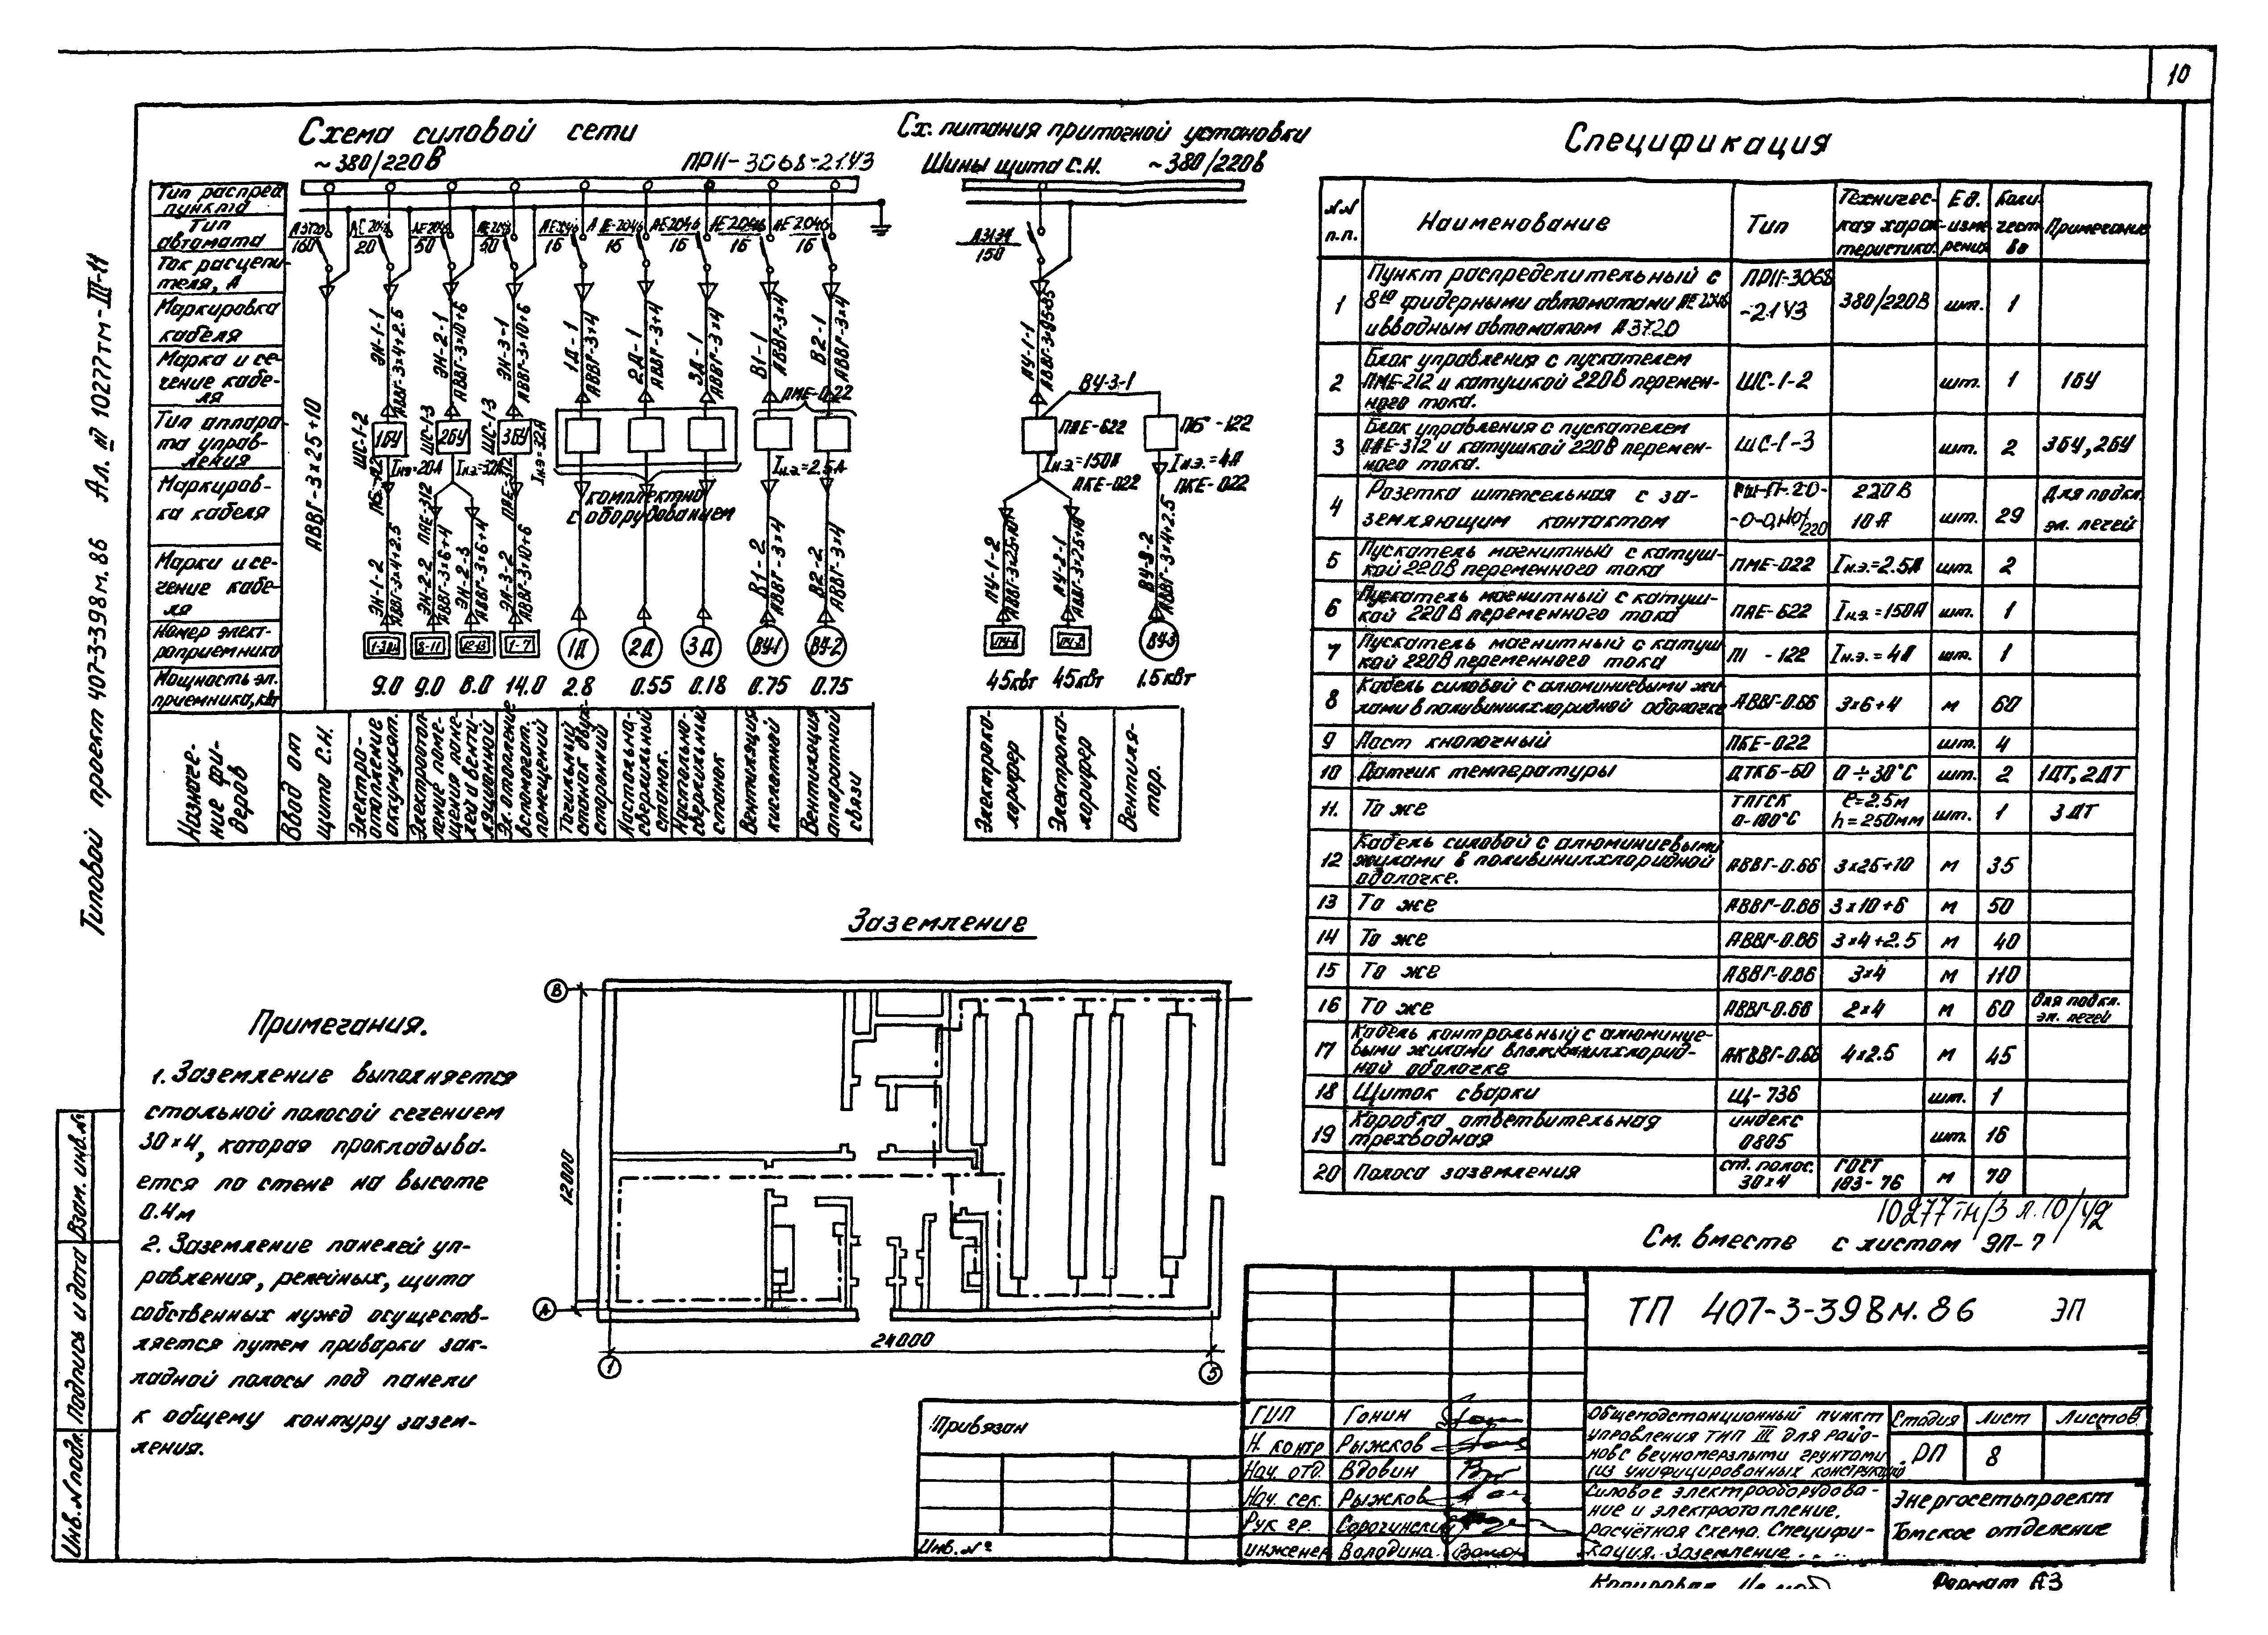 10
Типовой проект 407-3-398м.86 Ал. III 10277тм-III-11
Схема силовой сети
~380/220В
ПРН-3068-21У3
Тип распред.
пункта
Тип
автомата
Ток расцепи-
теля, А
Маркировка
кабеля
Марка и се-
чение кабе-
ля
Тип аппара
та управ-
ления
Маркиров-
ка кабеля
Марки и се-
чение кабе-
ля
Номер элект-
роприемника
Мощность эл.
приемника, квт
А3720
160
АЕ2046
20
АЕ2046
50
АЕ2046
50
АЕ2046
16
АЕ-2046
16
АЕ2046
16
АЕ2046
16
АЕ2046
16
АВВГ-3×25+10
ЭН-1-1
АВВГ-3×4+2.5
ЭН-2-1
АВВГ-3×10+6
ЭН-3-1
АВВГ-3×10+6
1Д-1
АВВГ-3×4
2Д-1
АВВГ-3×4
3Д-1
АВВГ-3×4
В1-1
АВВГ-3×4
В2-1
АВВГ-3×4
ПМЕ-022
ШС-1-2
1БУ
ШС-1-3
2БУ
ШС-1-3
3БУ
Iн.э=20А
Iн.э=32А
Iн.э=32А
Iн.э=2.5А
ПАЕ-312
ПАЕ-312
комплектно
с оборудованием
ЭН-1-2
АВВГ-3×4+2.5
ЭН-2-2
АВВГ-3×6+4
ЭН-2-3
АВВГ-3×6+4
ЭН-3-2
АВВГ-3×10+6
В1-2
АВВГ-3×4
В2-2
АВВГ-3×4
8-11
12-13
1-7
1Д
2Д
3Д
ВУ-1
ВУ-2
9.0 9.0 8.0 14.0 2.8 0.55 0.18 0.75 0.75
Назначе-
ние фи-
деров
Ввод от
щита С.Н.
Электро-
отопление
аккумулят.
Электроотоп-
ление поме-
щения пане-
лей и венти-
ляционной
Эл. отопление
вспомогат.
помещений
Точильный
станок двух-
сторонний
Настольно-
сверлильный
станок.
Настольно-
сверлильный
станок
Вентиляция
кислотной
Вентиляция
аппаратной
связи
Сх. питания приточной установки
Шины щита С.Н. ~380/220В
А3134
150
ПУ-1-1
АВВГ-3×95+35
ВУ-3-1
ПАЕ-622
-122
Iн.э.=150А
ПКЕ-022
Iн.э.=4А
ПКЕ-022
ПУ-1-2
АВВГ-3×25+10
ПУ-2-1
АВВГ-3×25+10
ВУ-3-2
АВВГ-3×4+2.5
ВУ-3
45квт 45квт 1.5квт
Электрока-
лорифер
Электрока-
лорифер
Вентиля-
тор.
Спецификация
№№
п.п.
Наименование
Тип
Техничес-
кая харак-
теристика.
Ед.
изме-
рения.
Коли-
чест-
во
Примечание
1 Пункт распределительный с
8ю фидерными автоматами АЕ2046
и вводным автоматом А3720
ПРН-3068
-21У3
380/220В шт. 1
2 Блок управления с пускателем
ПМЕ-212 и катушкой 220В перемен-
ного тока.
ШС-1-2 шт. 1 1БУ
3 Блок управления с пускателем
ПАЕ-312 и катушкой 220В перемен-
ного тока.
ШС-1-3 шт. 2 3БУ, 2БУ
4 Розетка штепсельная с за-
земляющим контактом
РШ-П-20-
-0-0,1-10/220
220В
10А
шт. 29
Для подкл.
эл. печей
5 Пускатель магнитный с катуш-
кой 220В переменного тока
ПМЕ-022 Iн.э.=2.5А шт. 2
6 Пускатель магнитный с катуш-
кой 220В переменного тока
ПАЕ-622 Iн.э.=150А шт. 1
7 Пускатель магнитный с катуш
кой 220В переменного тока
-122 Iн.э.=4А шт. 1
8 Кабель силовой с алюминиевыми жи-
лами в поливинилхлоридной оболочке
АВВГ-0.66 3×6+4 м 60
9 Пост кнопочный ПКЕ-022 шт. 4
10 Датчик температуры ДТКБ-50 0÷30°С шт. 2 1ДТ, 2ДТ
11. То же
ТПГСК
0-180°С
ℓ=2.5м
h=250мм
шт. 1 3ДТ
12 Кабель силовой с алюминиевыми
жилами в поливинилхлоридной
оболочке.
АВВГ-0.66 3×25+10 м 35
13 То же АВВГ-0.66 3×10+6 м 50
14 То же АВВГ-0.66 3×4+2.5 м 40
15 То же АВВГ-0.66 3×4 м 110
16 То же АВВГ-0.66 2×4 м 60
для подкл.
эл. печей
17 Кабель контрольный с алюминие-
выми жилами в поливинилхлорид-
ной оболочке
АКВВГ-0.66 4×2.5 м 45
18 Щиток сварки Щ-736 шт. 1
19 Коробка ответвительная
трехвводная
индекс
0805
шт. 16
20 Полоса заземления
ст. полос.
30×4
ГОСТ
103-76
м 70
10277тм/3 л.10/42
См. вместе с листом ЭП-7
Заземление
В
А
12000
24000
1
5
Примечания.
1. Заземление выполняется
стальной полосой сечением
30×4, которая прокладыва-
ется по стене на высоте
0.4м
2. Заземление панелей уп-
равления, релейных, щита
собственных нужд осуществ-
ляется путем приварки зак-
ладной полосы под панели
к общему контуру зазем-
ления.
Взам. инв.№
Подпись и дата
Инв. № подл.
Привязан
Инв. №
ТП 407-3-398м.86 ЭП
ГИП Гонин
Н. контр Рыжков
Нач. отд. Вдовин
Нач. сек. Рыжков
Рук гр. Сорочинский
инженер Володина
Общеподстанционный пункт
управления тип III для райо-
нов с вечномерзлыми грунтами
(из унифицированных конструкций)
Стадия Лист Листов
РП 8
Силовое электрооборудова-
ние и электроотопление.
расчётная схема. Специфи-
кация. Заземление
Энергосетьпроект
Томское отделение
Копировал
Формат А3